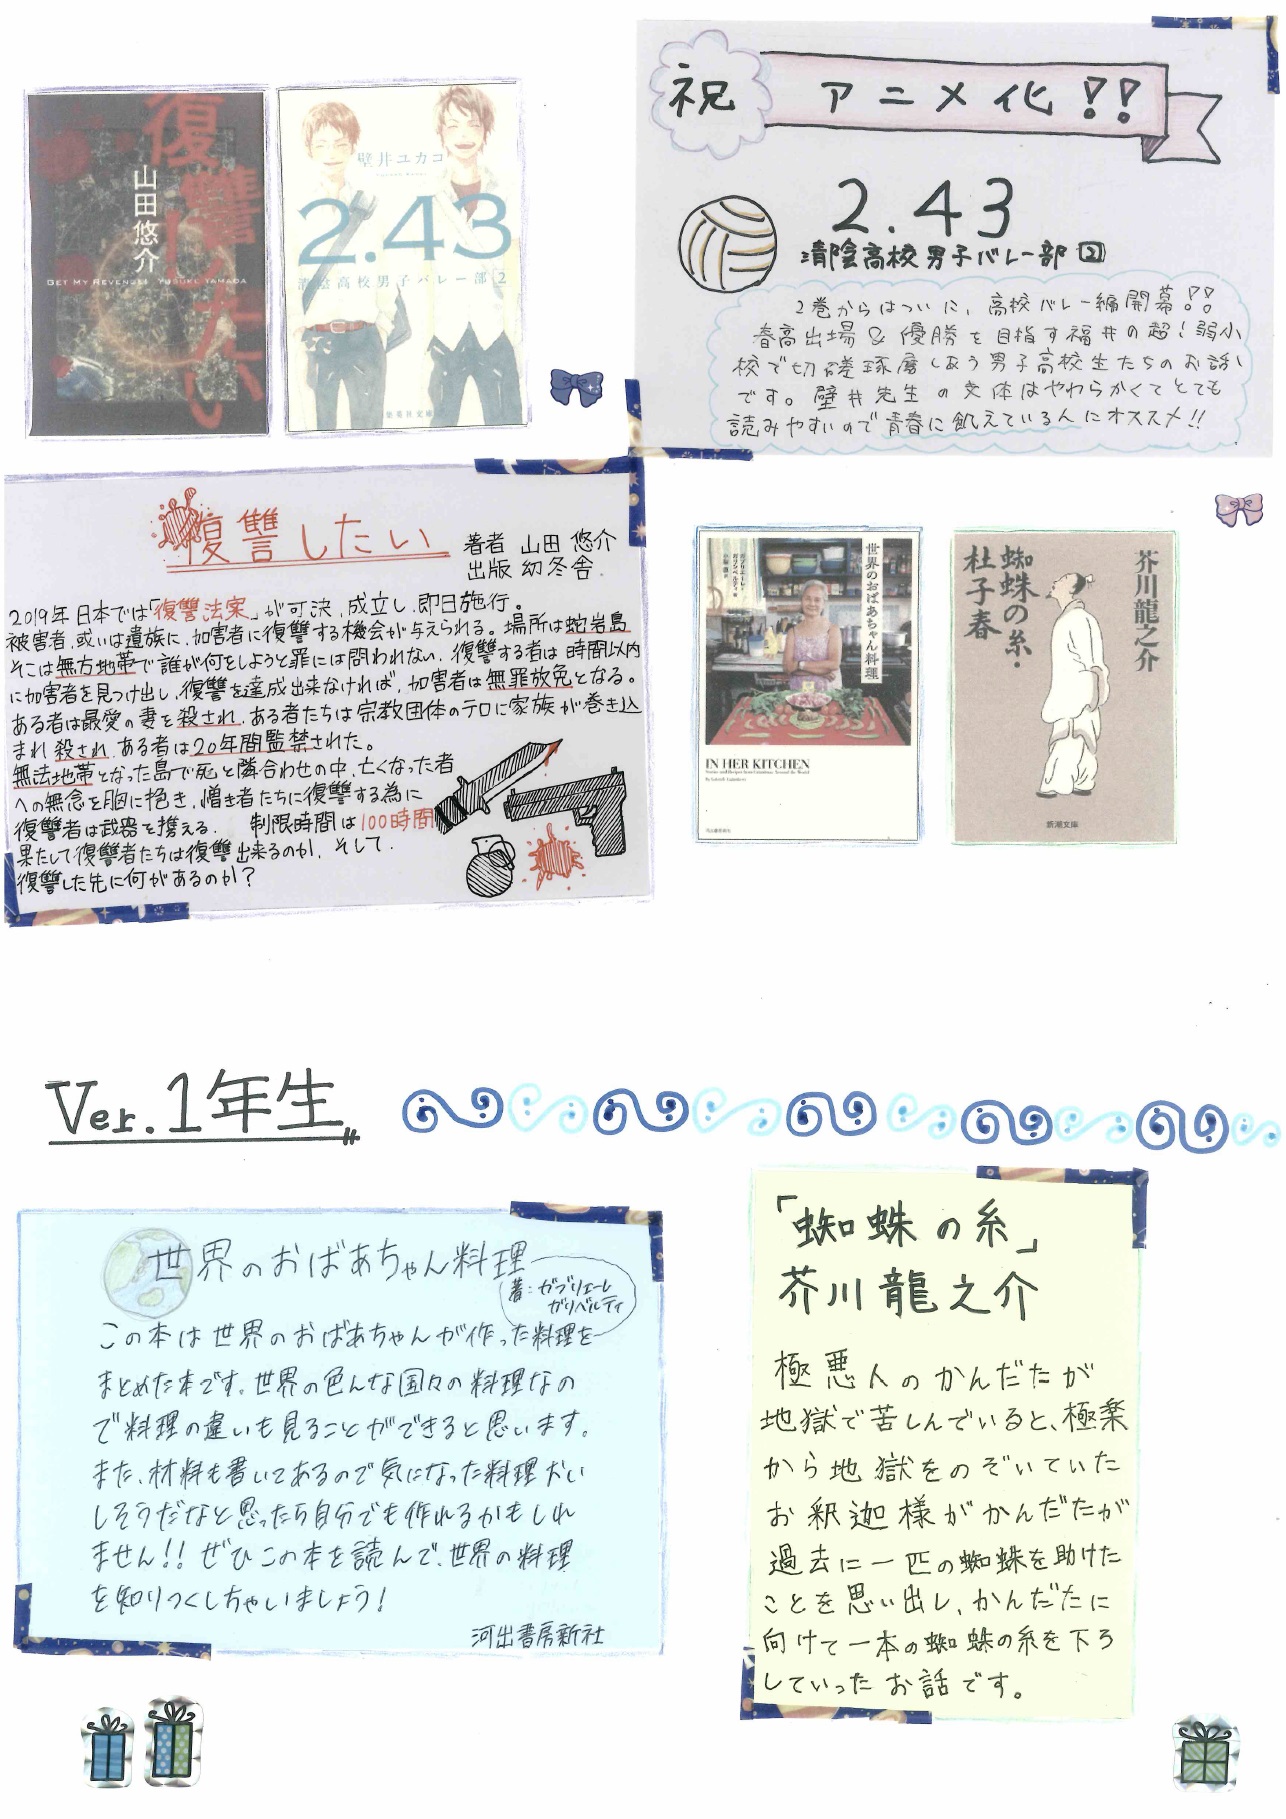 復讐したい
山田悠介
GET MY REVENGE! YUSUKE YAMADA
壁井ユカコ
2.43
清陰高校男子バレー部 2
集英社文庫
祝 アニメ化!!
2.43
清陰高校男子バレー部 2
2巻からはついに、高校バレー編開幕!!
春高出場&優勝を目指す福井の超!弱小
校で切磋琢磨しあう男子高校生たちのお話
です。壁井先生の文体はやわらかくてとても
読みやすいので青春に飢えている人にオススメ!!
復讐したい
著者 山田 悠介
出版 幻冬舎.
2019年日本では「復讐法案」が可決、成立し、即日施行。
被害者、或いは遺族に、加害者に復讐する機会が与えられる。場所は蛇岩島
そこは無方地帯で誰が何をしようと罪には問われない。復讐する者は時間以内
に加害者を見つけ出し、復讐を達成出来なければ、加害者は無罪放免となる。
ある者は最愛の妻を殺され、ある者たちは宗教団体のテロに家族が巻き込
まれ殺され、ある者は20年間監禁された。
無法地帯となった島で死と隣合わせの中、亡くなった者
への無念を胸に抱き、憎き者たちに復讐する為に
復讐者は武器を携える。 制限時間は100時間
果たして復讐者たちは復讐出来るのか、そして、
復讐した先に何があるのか?
世界のおばあちゃん料理
IN HER KITCHEN
Stories and Recipes from Grandmas Around the World
河出書房新社
芥川龍之介
蜘蛛の糸・
杜子春
新潮文庫
Ver.1年生
世界のおばあちゃん料理
著:ガブリエーレ
ガリベルティ
この本は世界のおばあちゃんが作った料理を
まとめた本です。世界の色んな国々の料理なの
で料理の違いも見ることができると思います。
また、材料も書いてあるので気になった料理おい
しそうだなと思ったら自分でも作れるかもしれ
ません!! ぜひこの本を読んで、世界の料理
を知りつくしちゃいましょう!
河出書房新社
「蜘蛛の糸」
芥川龍之介
極悪人のかんだたが
地獄で苦しんでいると、極楽
から地獄をのぞいていた
お釈迦様がかんだたが
過去に一匹の蜘蛛を助けた
ことを思い出し、かんだたに
向けて一本の蜘蛛の糸を下ろ
していったお話です。